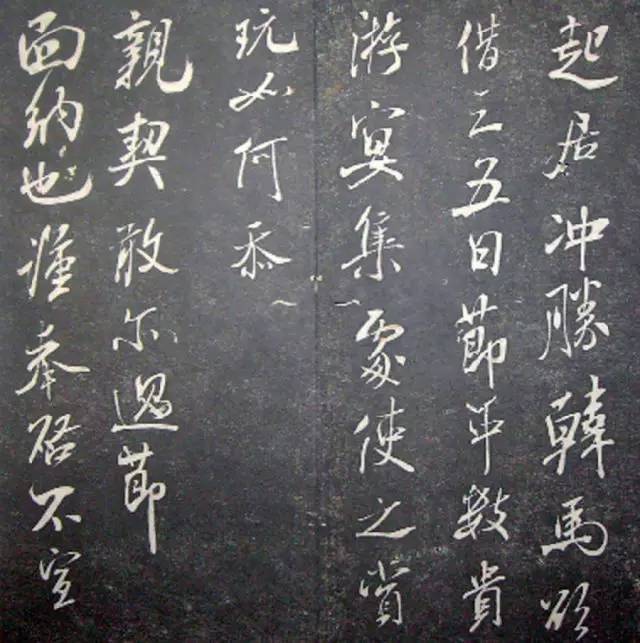 起居冲勝韓馬欲
借三五日節中數貴
游宴集處使之賞
玩如何忝
親契敢尔過節
面納也謹奉啓不宣